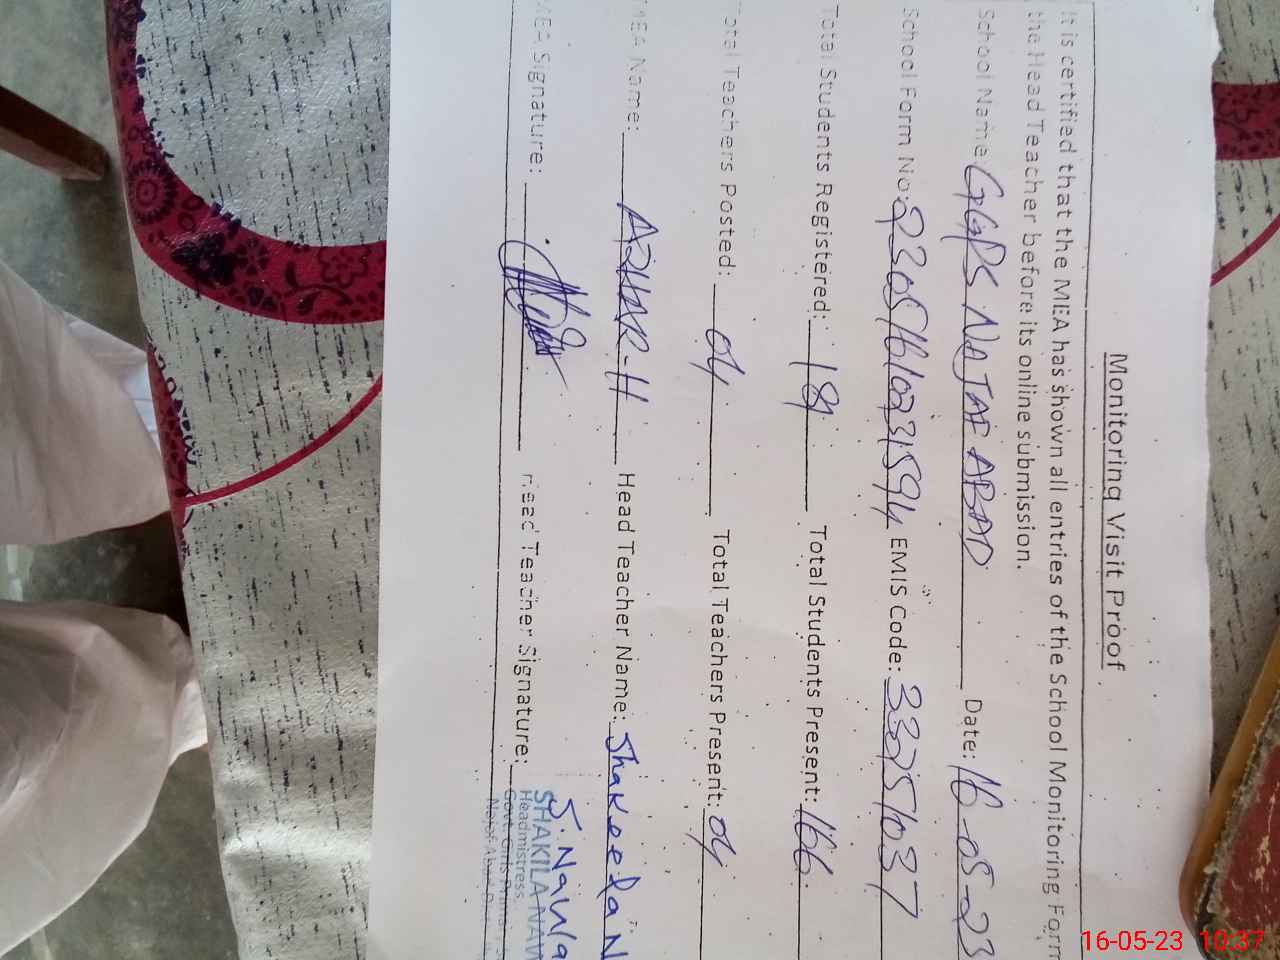 Monitoring Visit Proof
It is certified that the MEA has shown all entries of the School Monitoring Form
the Head Teacher before its online submission.
School Name GGPS NAJAF ABAD Date: 16-05-23
School Form No: 23051610231594 EMIS Code: 33251037
Total Students Registered: 181 Total Students Present: 166
Total Teachers Posted: 04 Total Teachers Present: 04
MEA Name: AZHAR-H Head Teacher Name: Shakeela N
MEA Signature: Head Teacher Signature: S. Nawa
SHAKILA NAW
Headmistress
Govt. Girls
16-05-23 10:37